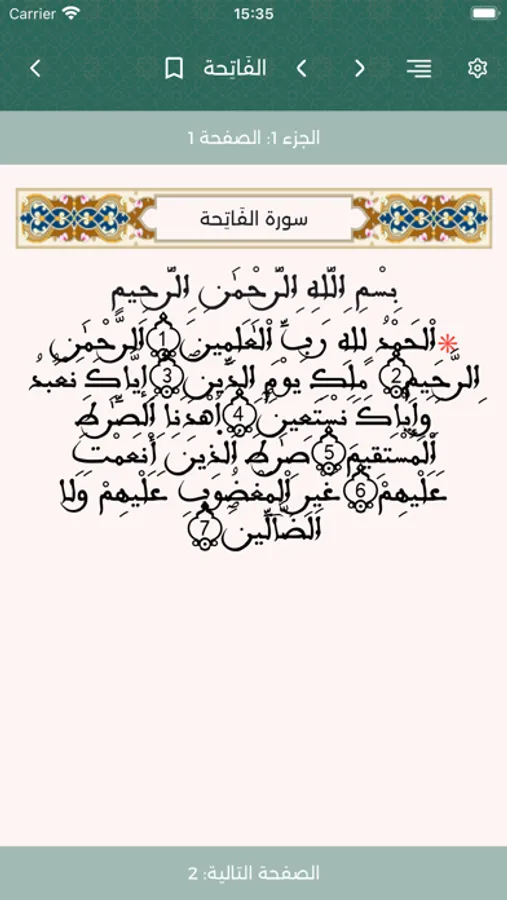 Carrier 15:35
الفَاتِحة
الجزء 1: الصفحة 1
سورة الفَاتِحة
بِسْمِ اِ۬للَّهِ اِ۬لرَّحْمَٰنِ اِ۬لرَّحِيمِ
اَ۬لْحَمْدُ لِلهِ رَبِّ اِ۬لْعَٰلَمِينَ 1 اَ۬لرَّحْمَٰنِ
اِ۬لرَّحِيمِ 2 مَلِكِ يَوْمِ اِ۬لدِّينِ 3 إِيَّاكَ نَعْبُدُ
وَإِيَّاكَ نَسْتَعِينُ 4 اُ۪هْدِنَا اَ۬لصِّرَٰطَ
اَ۬لْمُسْتَقِيمَ 5 صِرَٰطَ اَ۬لذِينَ أَنْعَمْتَ
عَلَيْهِمْ 6 غَيْرِ اِ۬لْمَغْضُوبِ عَلَيْهِمْ وَلَا
اَ۬لضَّآلِّينَ 7
الصفحة التالية: 2